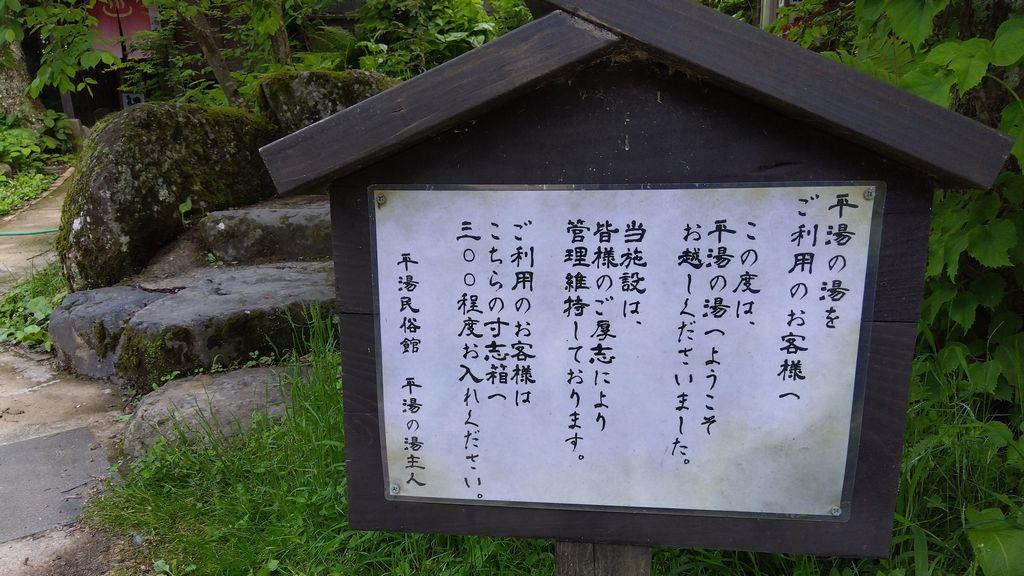 平湯の湯を
ご利用のお客様へ
この度は、
平湯の湯へようこそ
お越しくださいました。
当施設は、
皆様のご厚志により
管理維持しております。
ご利用のお客様は
こちらの寸志箱へ
三〇〇程度お入れください。
平湯民俗館 平湯の湯主人